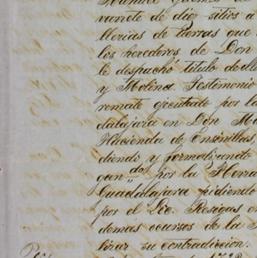 de diez sitios á
llerias de tierras que
los herederos de Don
le despachó título de
y Molina. Testimonio
remate ejecutado por la
dalajara en Don
Hacienda de Ensinillas,
diendo y formalizando
por la
Guadalajara pidiendo
por el Lic. Resigas
demas ocursos de la
su contradiccion.